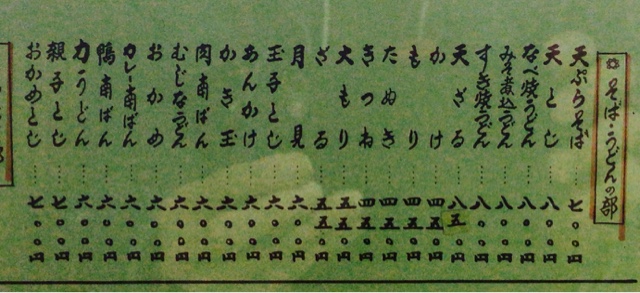 そば・うどんの部
天ぷらそば……七〇〇円
天とじ……八〇〇円
なべ焼うどん……八〇〇円
みそ煮込うどん……八〇〇円
すき焼うどん……八〇〇円
天ざる……八五〇円
かけ……四五〇円
もり……四五〇円
たぬき……四五〇円
きつね……四五〇円
大もり……五五〇円
ざる……五五〇円
月見……六〇〇円
玉子とじ……六〇〇円
あんかけ……六〇〇円
かき玉……六〇〇円
肉南ばん……六〇〇円
むじなうどん……六〇〇円
おかめ……六〇〇円
カレー南ばん……六〇〇円
鴨南ばん……六〇〇円
力うどん……六〇〇円
親子とじ……七〇〇円
おかめとじ……七〇〇円